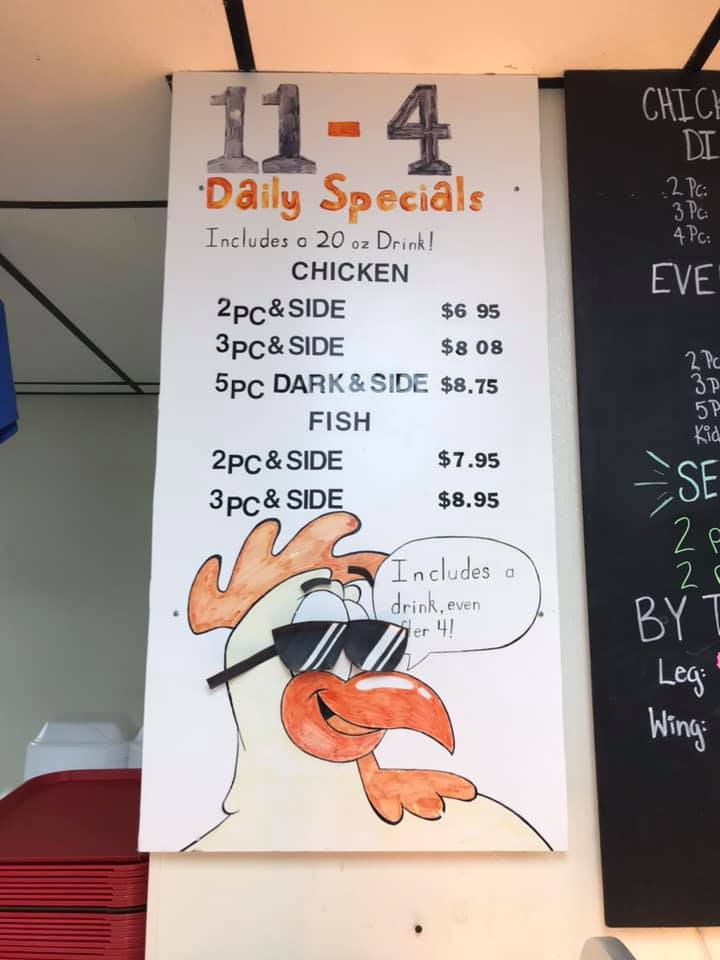 11-4
Daily Specials
Includes a 20 oz Drink!
CHICKEN
2PC & SIDE $6 95
3PC & SIDE $8 08
5PC DARK & SIDE $8.75
FISH
2PC & SIDE $7.95
3PC & SIDE $8.95
Includes a
drink, even
4!
2 Pc:
3 Pc:
4 Pc:
2
2
BY
Leg:
Wing: